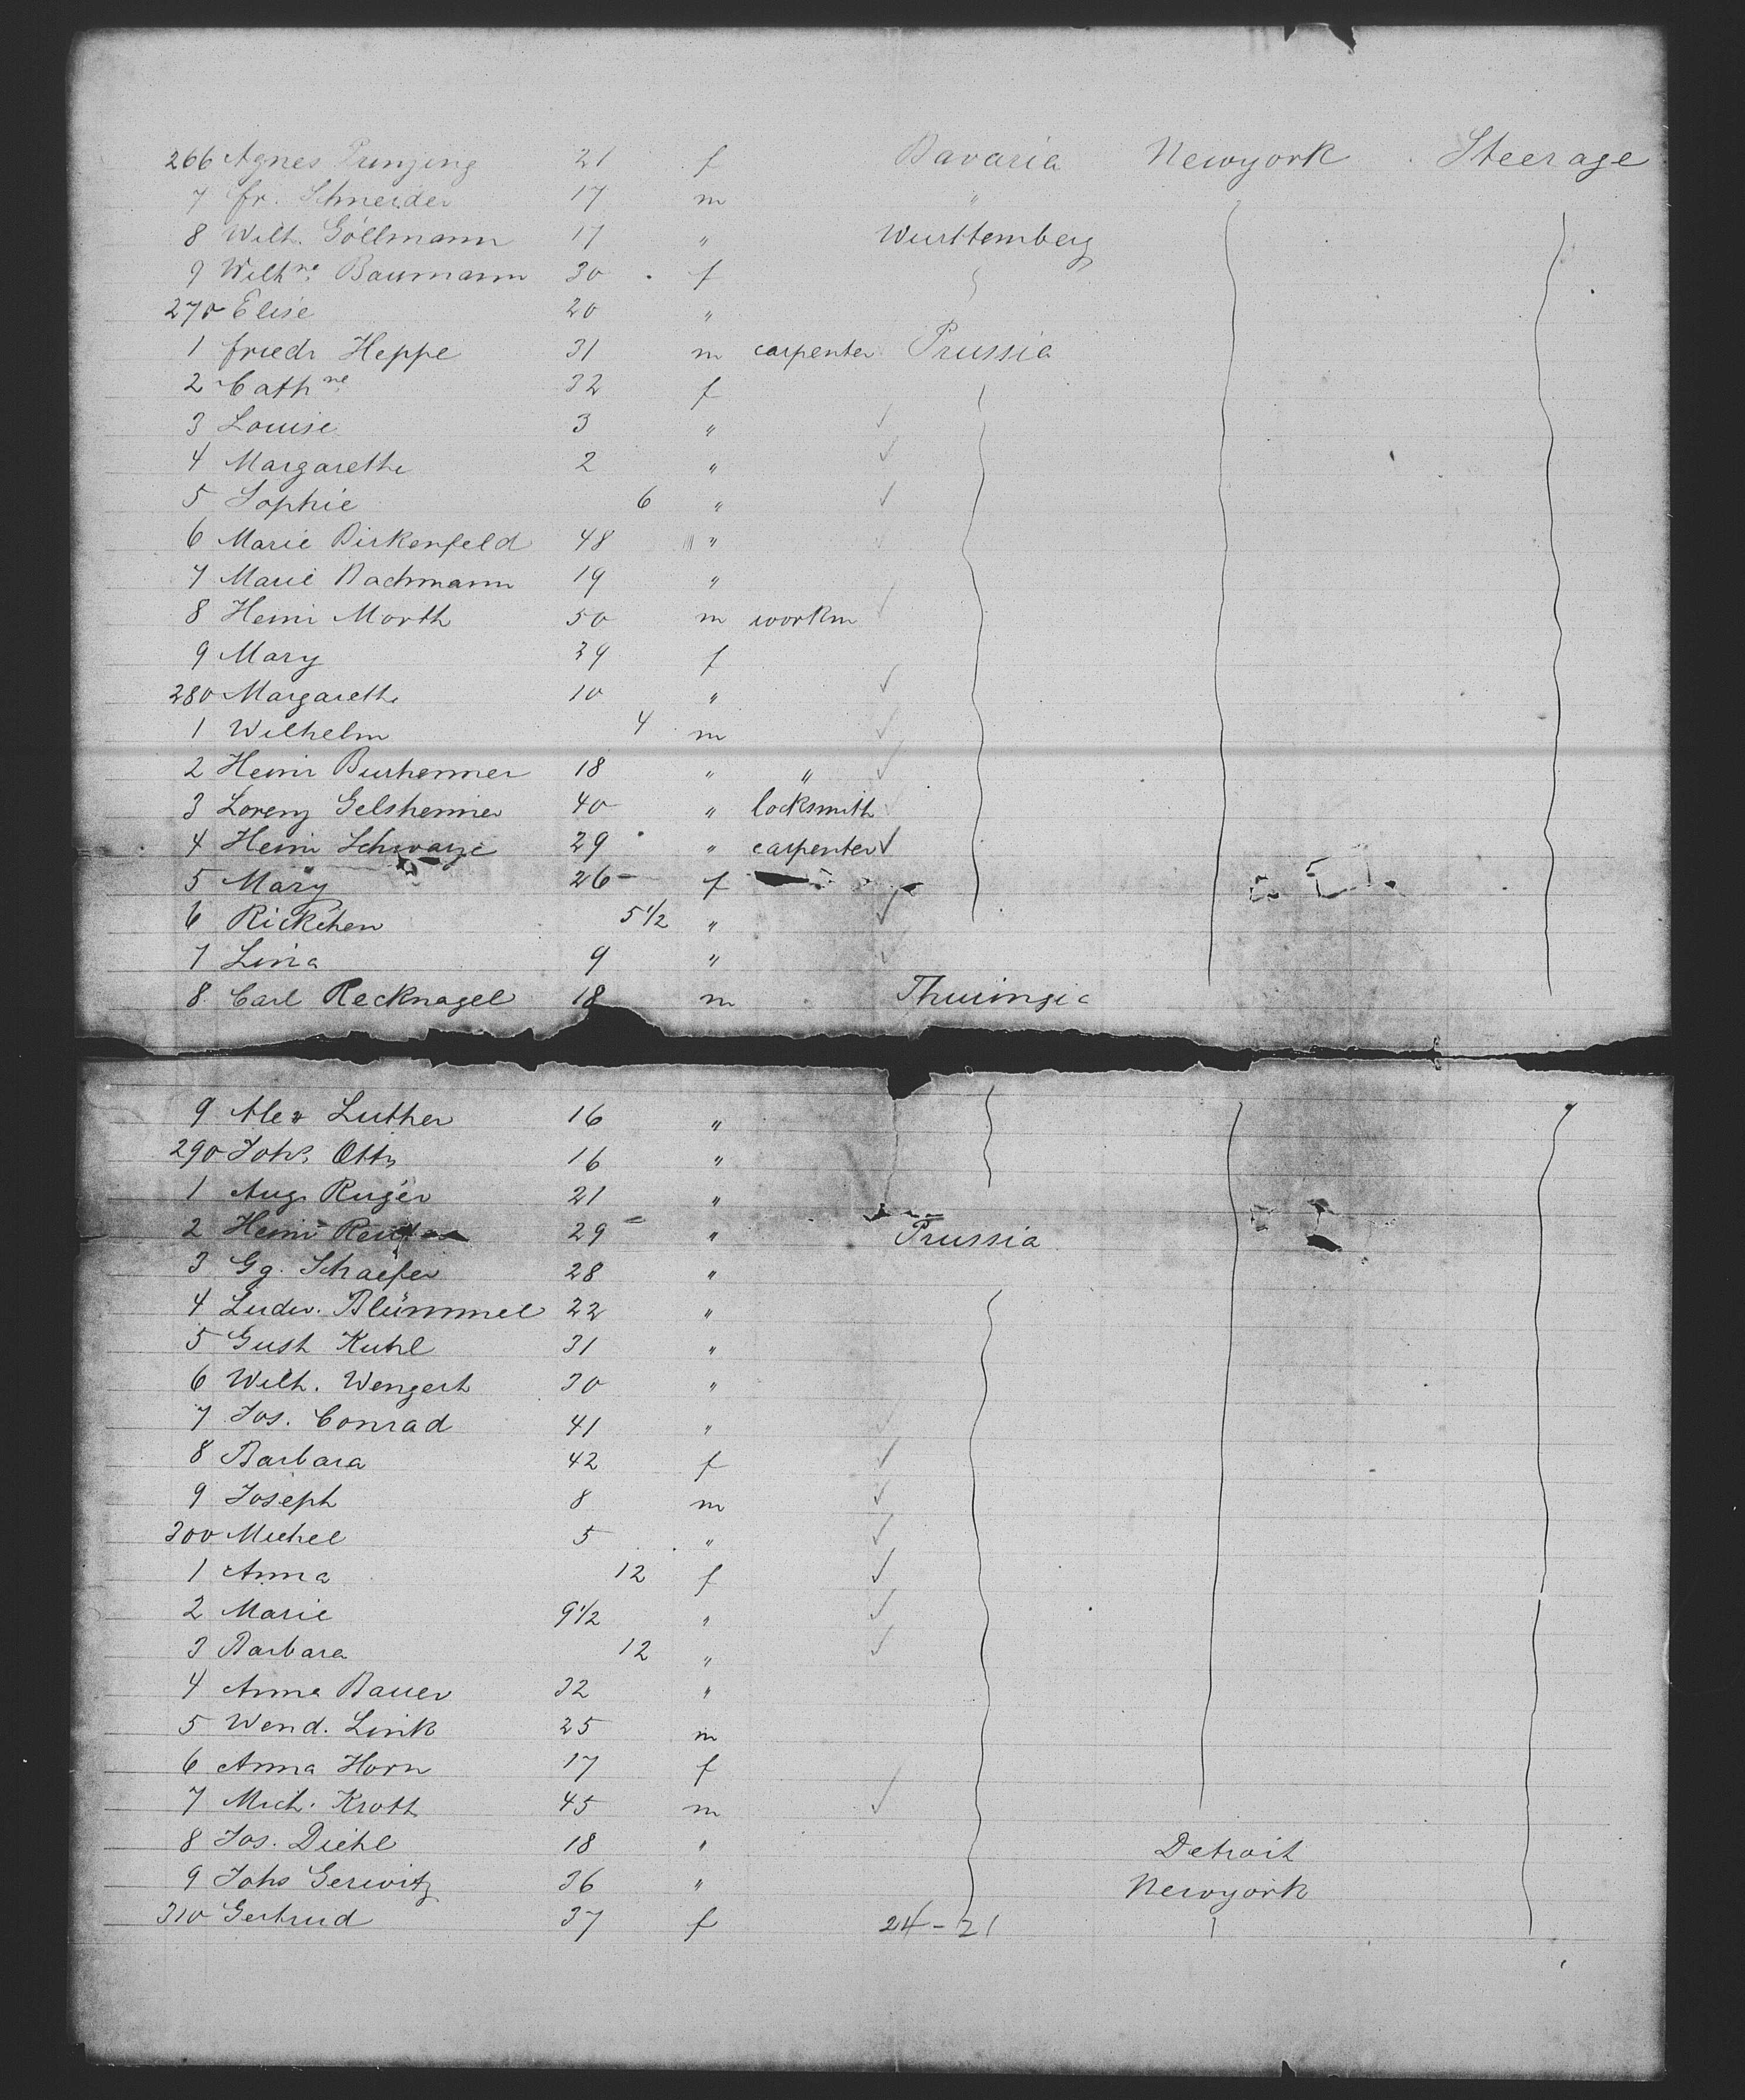 266 Agnes 21 f Bavaria Newyork Steerage
7 Fr. Schneider 17 m "
8 Wilh. Göllmann 17 " Wurttemberg
9 Wilhne Baumann 30 f
270 Elise 20 "
1 Friedr Heppe 31 m carpenter Prussia
2 Cathne 32 f
3 Louise 3 "
4 Margarethe 2 "
5 Sophie 6 "
6 Marie Birkenfeld 48 "
7 Marie Bachmann 19 "
8 Heinr Morth 50 m workm
9 Mary 39 f
280 Margareth 10 "
1 Wilhelm 4 m
2 Heinr 18 " "
3 Lorenz 40 " locksmith
4 Heinr Schwarze 29 " carpenter
5 Mary 26 f
6 Rickchen 5 1/2 "
7 Lina 9 "
8 Carl Recknagel 18 m Thuringia
9 Alex Luther 16 "
290 Johs Otto 16 "
1 Aug. Ruger 21 "
2 Heinr 29 " Prussia
3 Gg. Schaefer 28 "
4 Ludw. Blümmel 22 "
5 Gust Kuhl 31 "
6 Wilh. Wengert 30 "
7 Jos. Conrad 41 "
8 Barbara 42 f
9 Joseph 8 m
300 Michel 5 "
1 Anna 12 f
2 Marie 9 1/2 "
3 Barbara 12 "
4 Anna Bauer 32 "
5 Wend. Link 25 m
6 Anna Horn 17 f
7 Mich. Kroth 45 m
8 Jos. Diehl 18 " Detroit
9 Johs Gerwitz 36 " Newyork
310 Gertrud 37 f 24-21